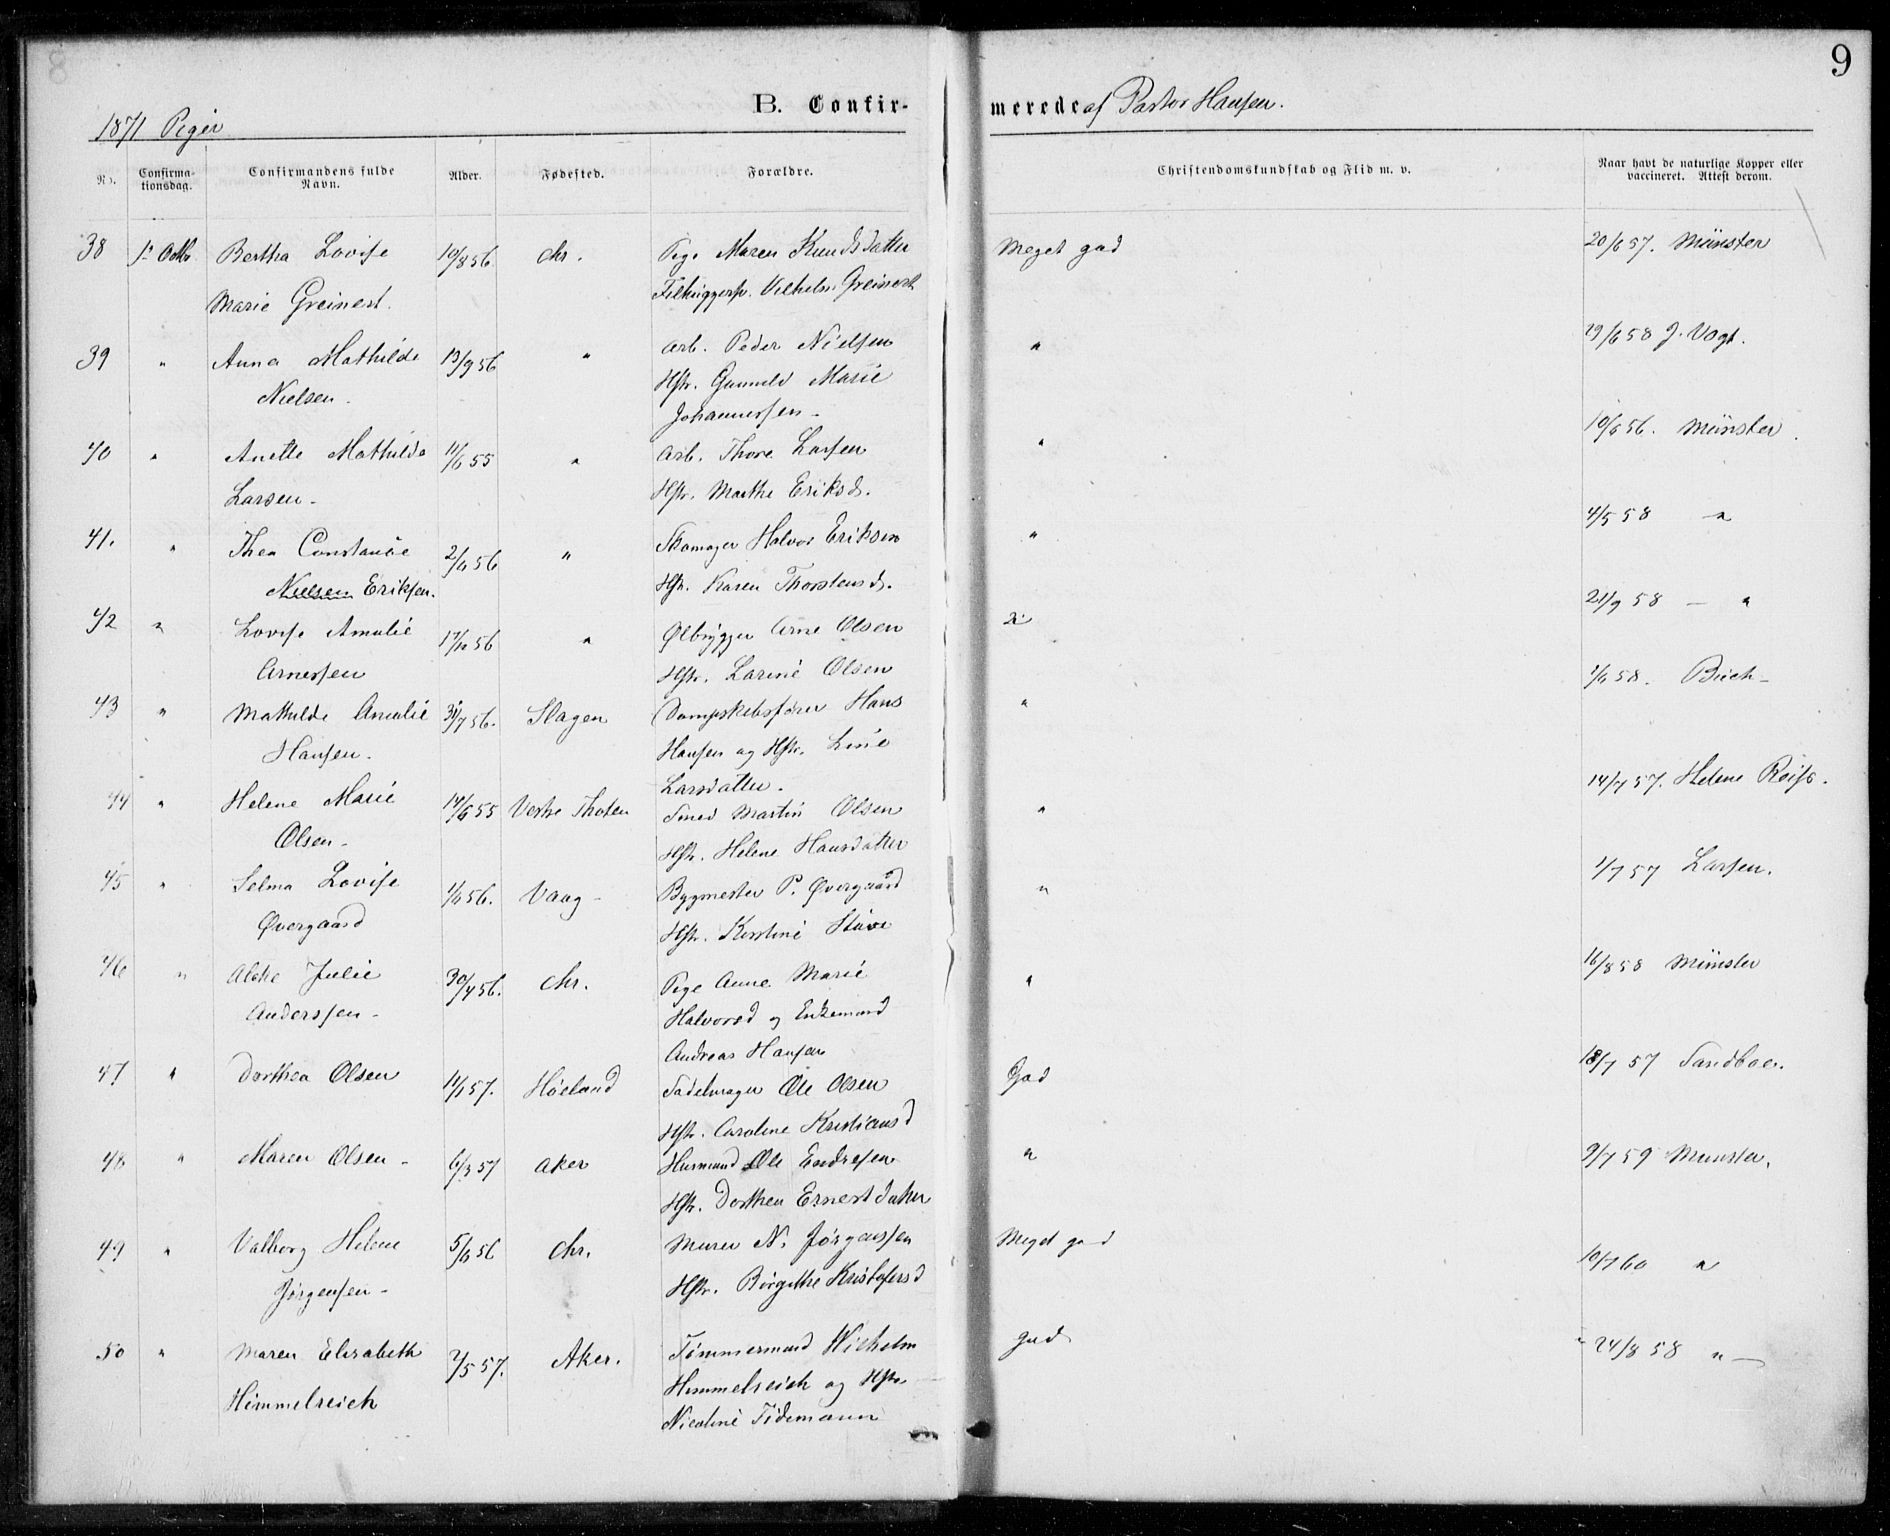 8
9
B. Confir-
merede af Pastor Hansen.
1871 Piger
No.
Confirma-
tionsdag.
Confirmandens fulde
Navn.
Alder.
Fødested.
Forældre.
Christendomskundskab og Flid m. v.
Naar havt de naturlige Kopper eller
vaccineret. Attest derom.
38 1ste Octbr. Bertha Lovise 10/8 56 Chr. Pige Maren Knudsdatter Meget god 20/6 57. Münster
Marie Greinert. Vilhelm Greinert
39 " Anna Mathilde 13/9 56 " Arb. Peder Nielsen " 29/6 58 J. Vogt.
Nielsen. Hstr. Gunnild Marie
Johannessen -
40 " Anette Mathilde 11/6 55 " Arb. Thore Larsen " 10/6 56. Münster.
Larsen - Hstr. Marthe Eriksd.
41. " Thea Constance 2/6 56 " Skomager Halvor Eriksen " 4/5 58 "
Nielsen Eriksen. Hstr. Karen Thorstensd.
42 " Lovise Amalie 17/10 56 " Ølbrygger Arne Olsen " 21/9 58 - "
Arnessen Hstr. Larine Olsen
43 " Mathilde Amalie 31/7 56. Slagen Dampskibsfører Hans " 1/6 58.
Hansen. Hansen og Hstr. Line
Larsdatter.
44 " Helene Marie 14/6 55 Vestre Thoten Smed Martin Olsen " 14/7 57. Helene
Olsen - Hstr. Helene Hansdatter
45 " Selma Lovise 1/6 56. Vaag - Bygmester P. Øvergaard " 1/7 57 Larsen.
Øvergaard Hstr. Kirstine
46 " Julie 30/4 56. Chr. Pige Anne Marie " 16/8 58 Münster
Anderssen - Halvorsd og Enkemand
Andreas Hansen
47 " Dorthea Olsen 14/1 57. Høeland Sadelmager Ole Olsen God 18/7 57 Sandboe.
Hstr. Caroline Kristiansd
48 " Maren Olsen - 6/3 57 Aker Husmand Ole Endresen " 9/7 59 Munster.
Hstr. Dorthea Ernestdatter
49 " Valborg Helene 5/6 56 Chr. Murer N. Jørgenssen Meget god 10/7 60 "
Jørgensen - Hstr. Birgithe Kristofersd
50 " Maren Elisabeth 2/5 57. Aker. Tømmermand Wilhelm god 24/8 58 " -
Himmelreich Himmelreich og Hstr.
Nicoline Tidemann